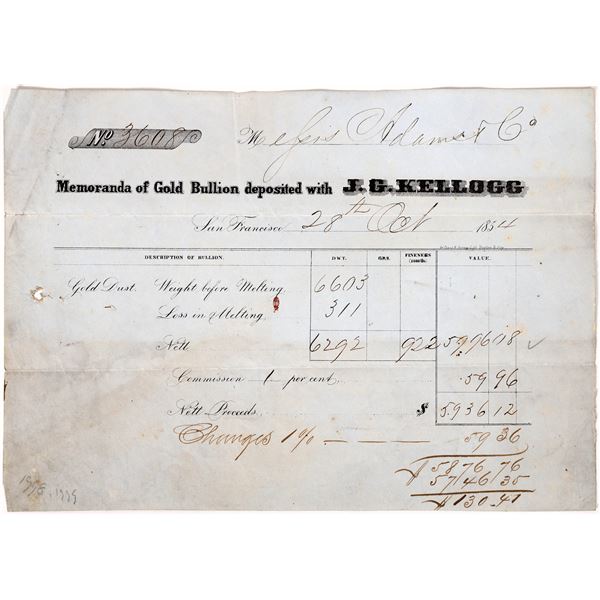 No. 3608 Messrs Adams & Co
Memoranda of Gold Bullion deposited with J. G. KELLOGG
San Francisco 28th Oct 1854
DESCRIPTION OF BULLION. DWT. GRS. FINENESS VALUE.
Gold Dust. Weight before Melting. 6603
Loss in Melting, 311
Nett 6292 922 5996 08
Commission 1 per cent, 59 96
Nett Proceeds, $ 5936 12
Charges 1% — — — 59 36
$5876 76
5746 35
$130.41